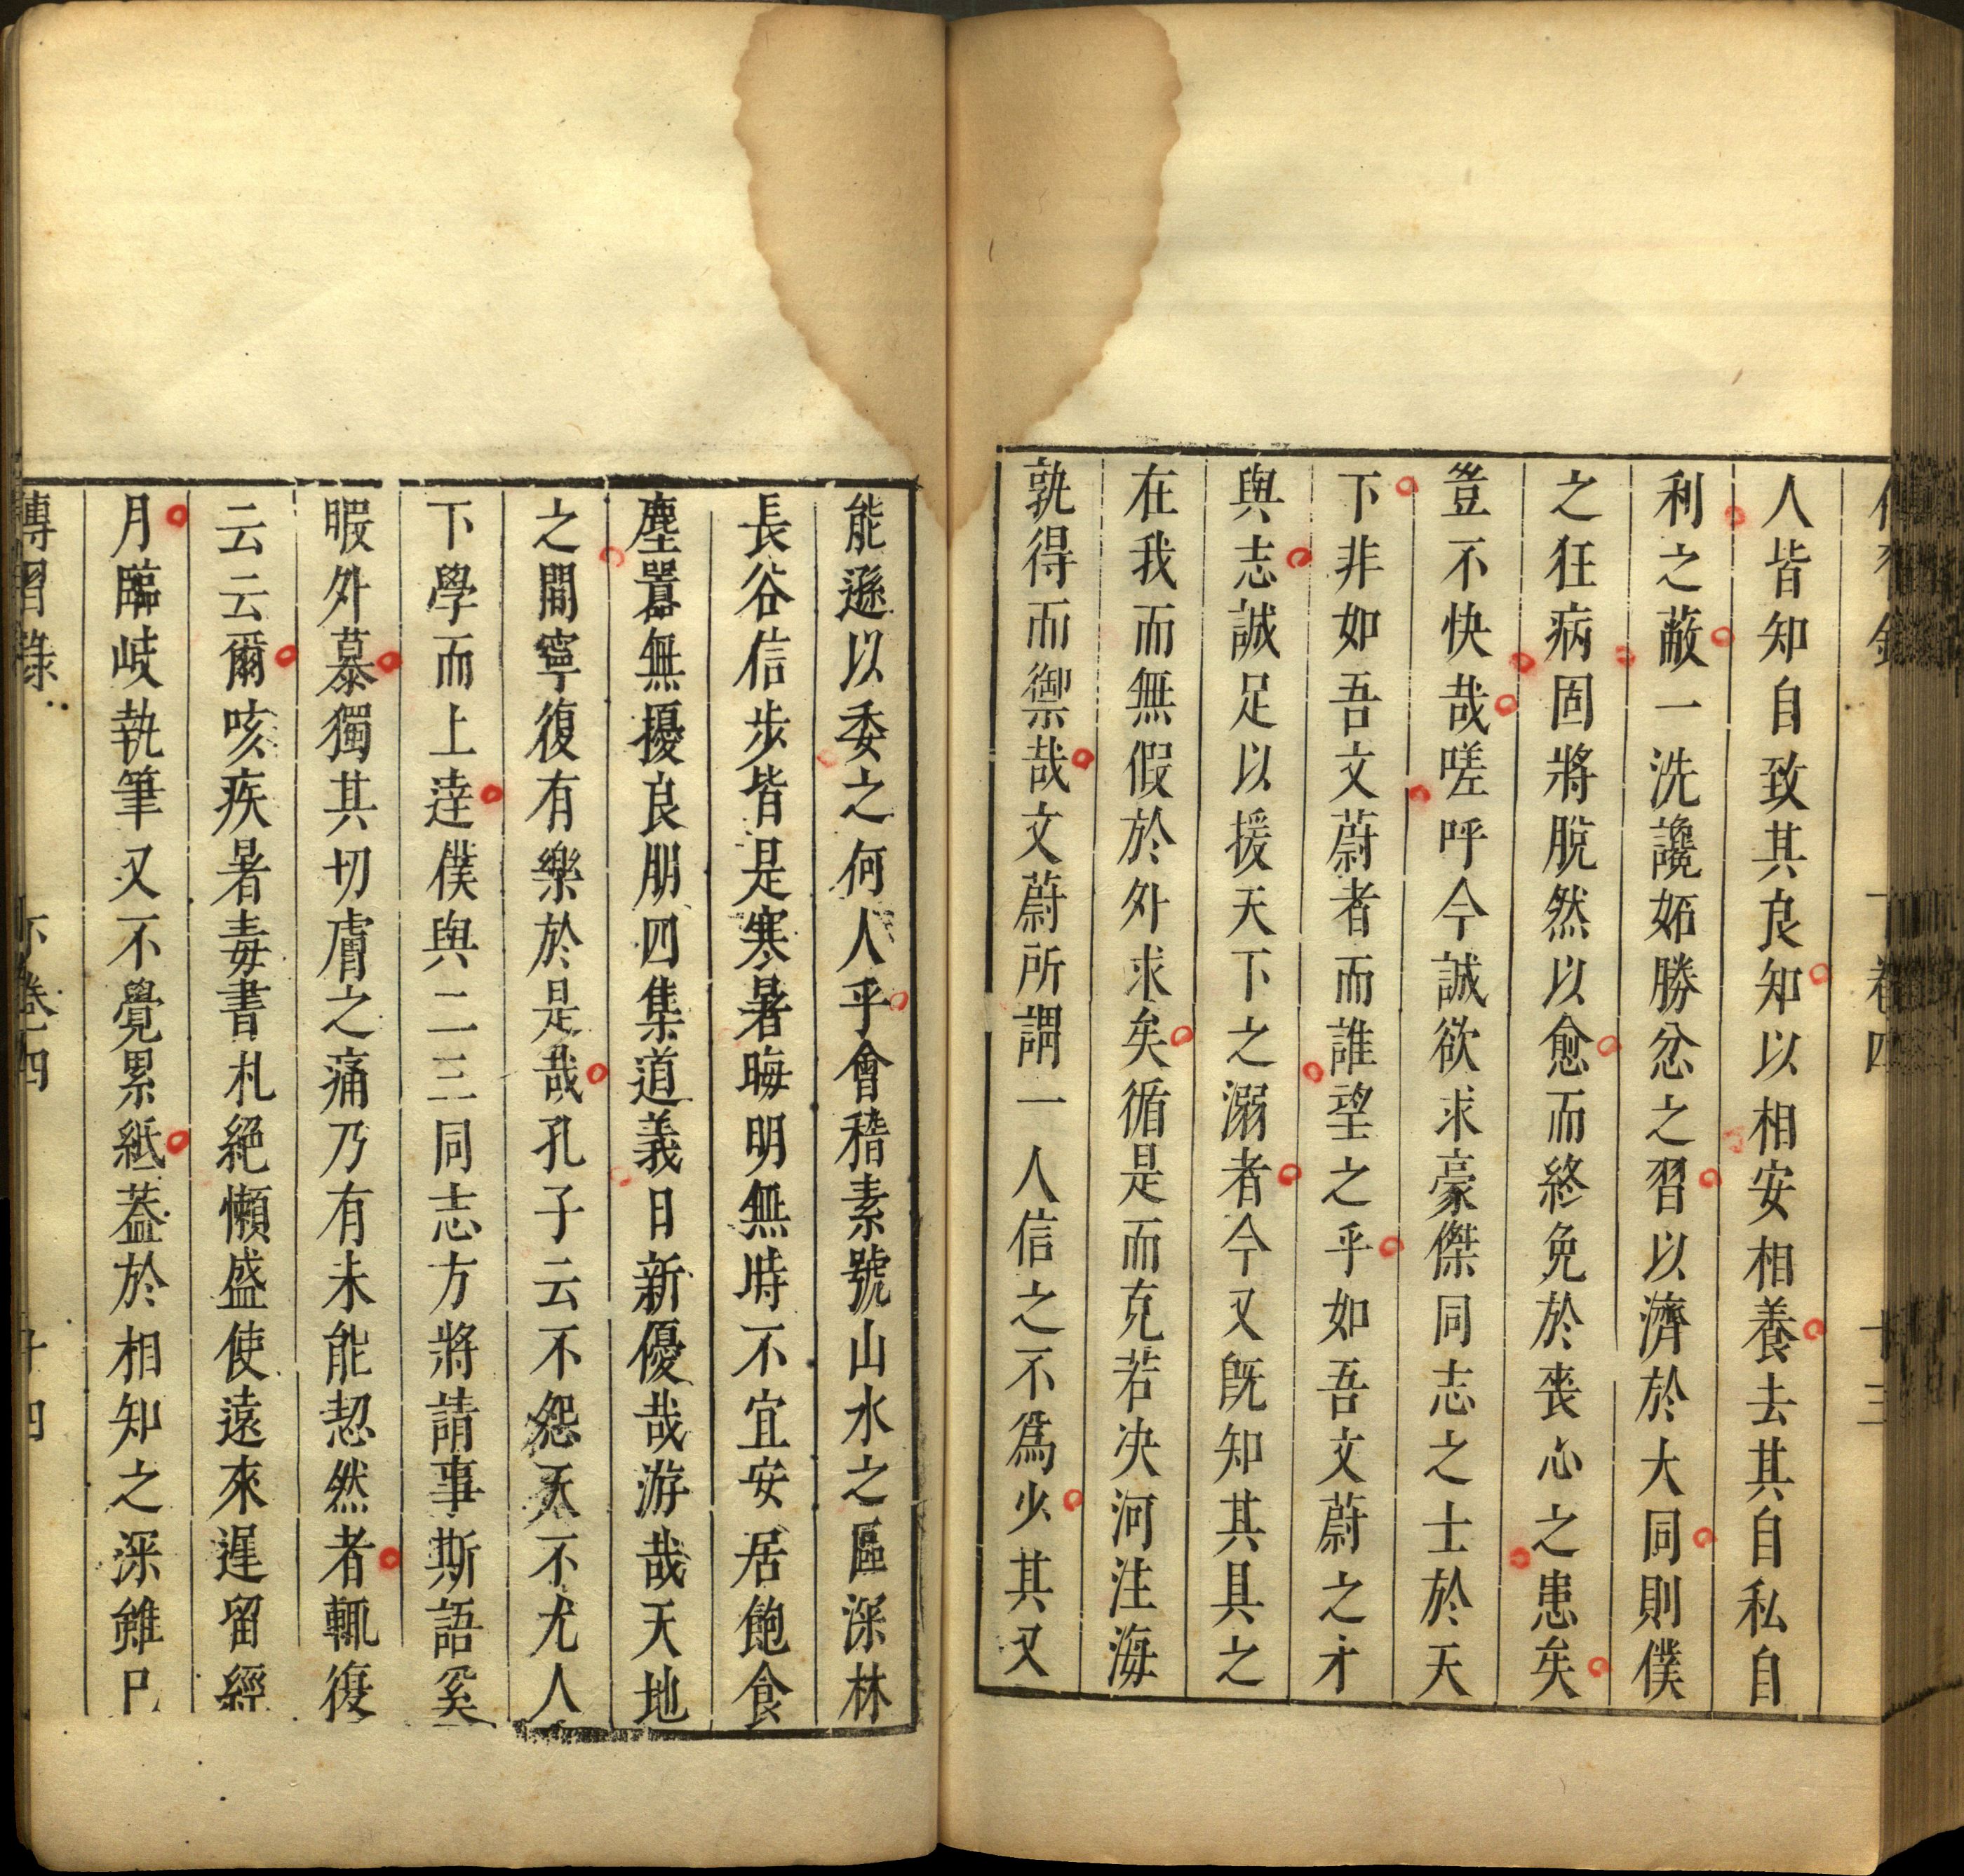 人皆知自致其良知以相安相養去其自私自
利之蔽一洗讒妬勝忿之習以濟於大同則僕
之狂病固將脫然以愈而終免於喪心之患矣
豈不快哉嗟呼今誠欲求豪傑同志之士於天
下非如吾文蔚者而誰望之乎如吾文蔚之才
與志誠足以援天下之溺者今又既知其具之
在我而無假於外求矣循是而充若决河注海
孰得而禦哉文蔚所謂一人信之不爲少其又
能遜以委之何人乎會稽素號山水之區深林
長谷信步皆是寒暑晦明無時不宜安居飽食
塵囂無擾良朋四集道義日新優哉游哉天地
之間寧復有樂於是哉孔子云不怨天不尤人
下學而上逹僕與二三同志方將請事斯語奚
暇外慕獨其切膚之痛乃有未能恝然者輒復
云云爾咳疾暑毒書札絕懶盛使遠來遲留經
月臨岐執筆又不覺累紙葢於相知之深雖巳
傳習錄 下卷四 十四